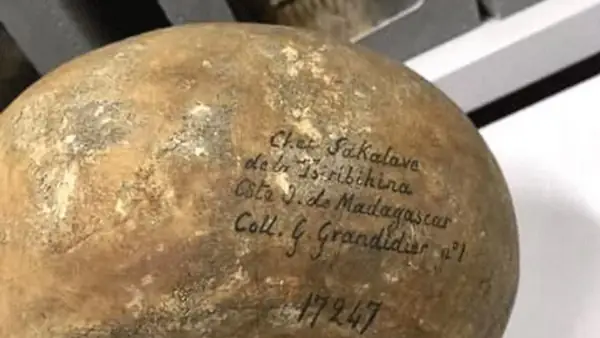 Chef Sakalave
de la Tsiribihina
Côte O. de Madagascar
Coll. G. Grandidier n°1
17247